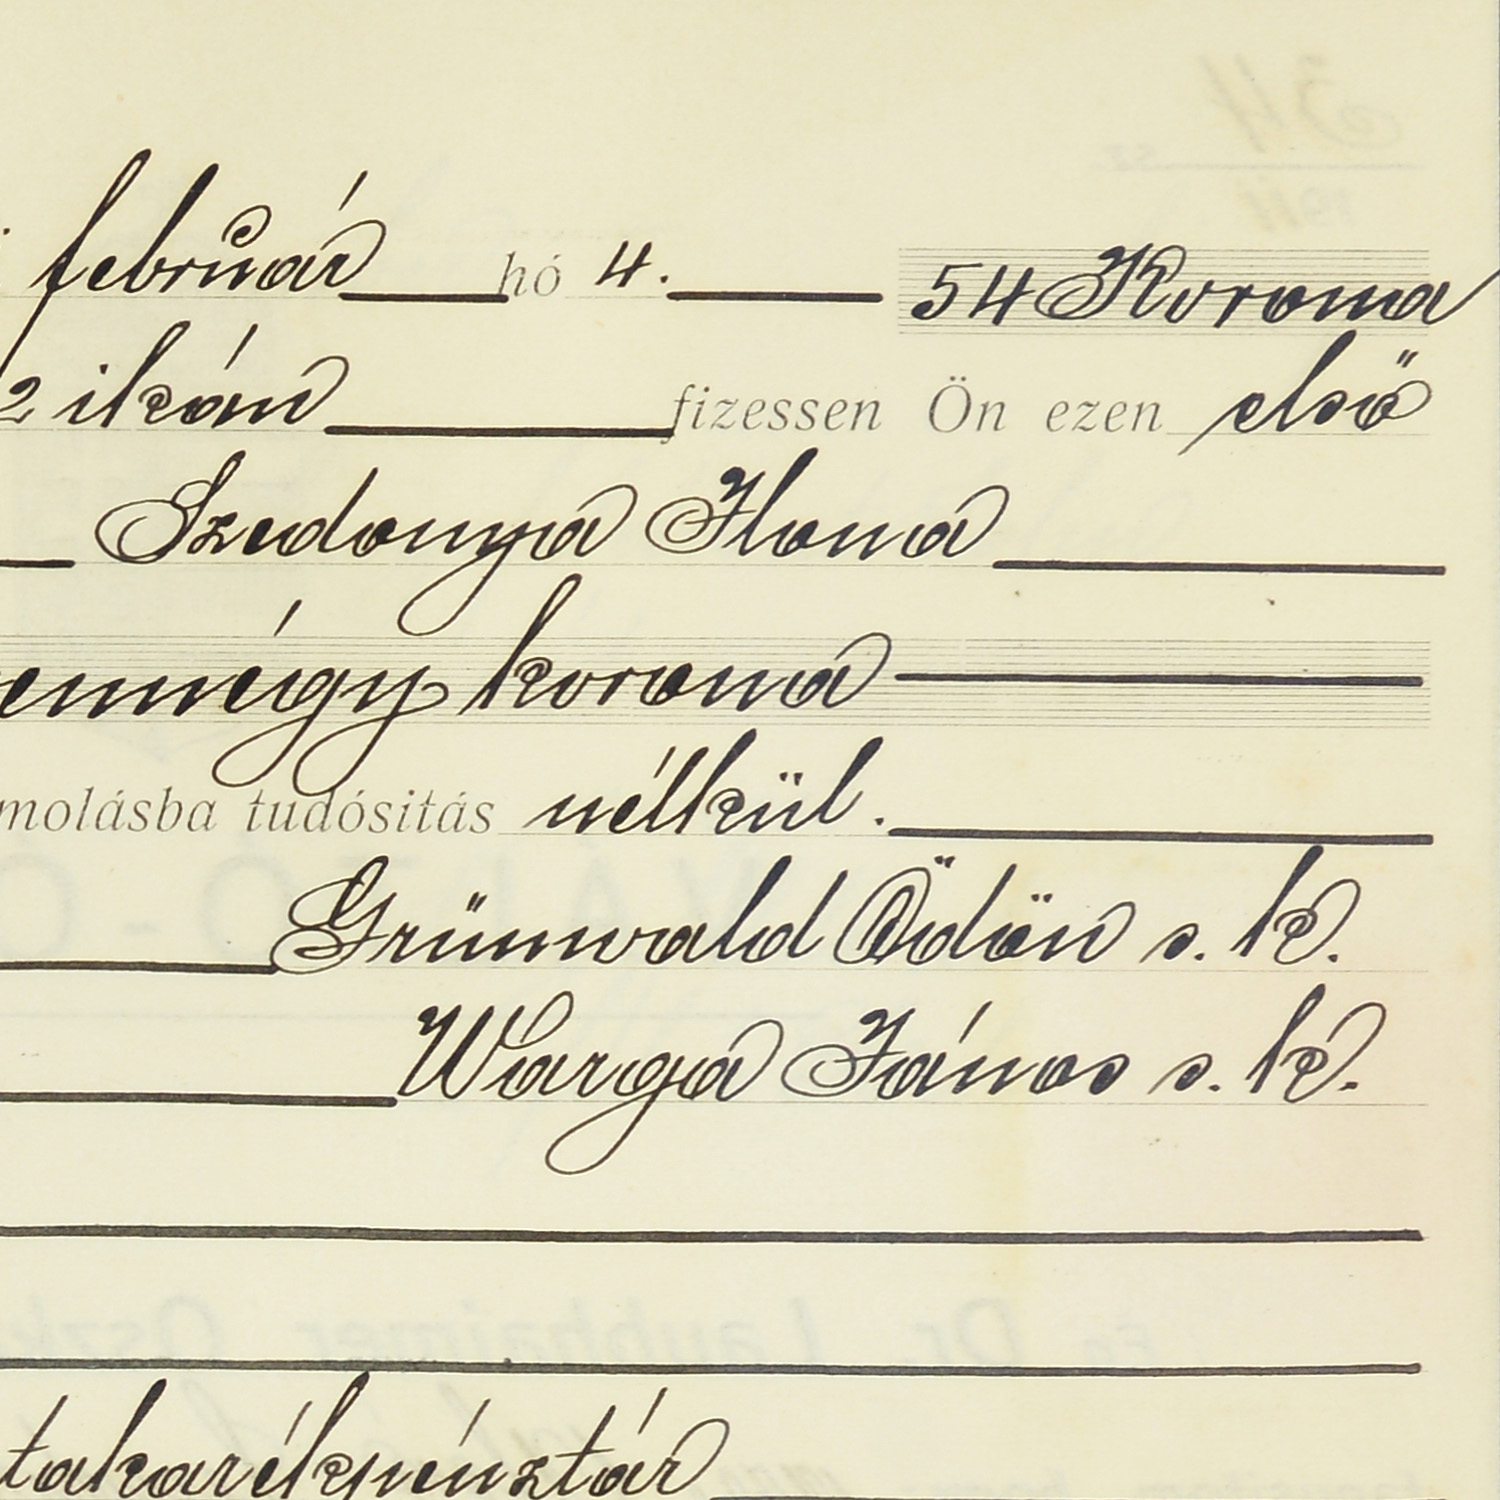 február hó 4. 54 Korona
2 ikán fizessen Ön ezen első
Szedonya Ilona
ennégy korona
molásba tudósitás nélkül.
Grünwald Ödön s. k.
Warga János s. k.
takarékpénztár